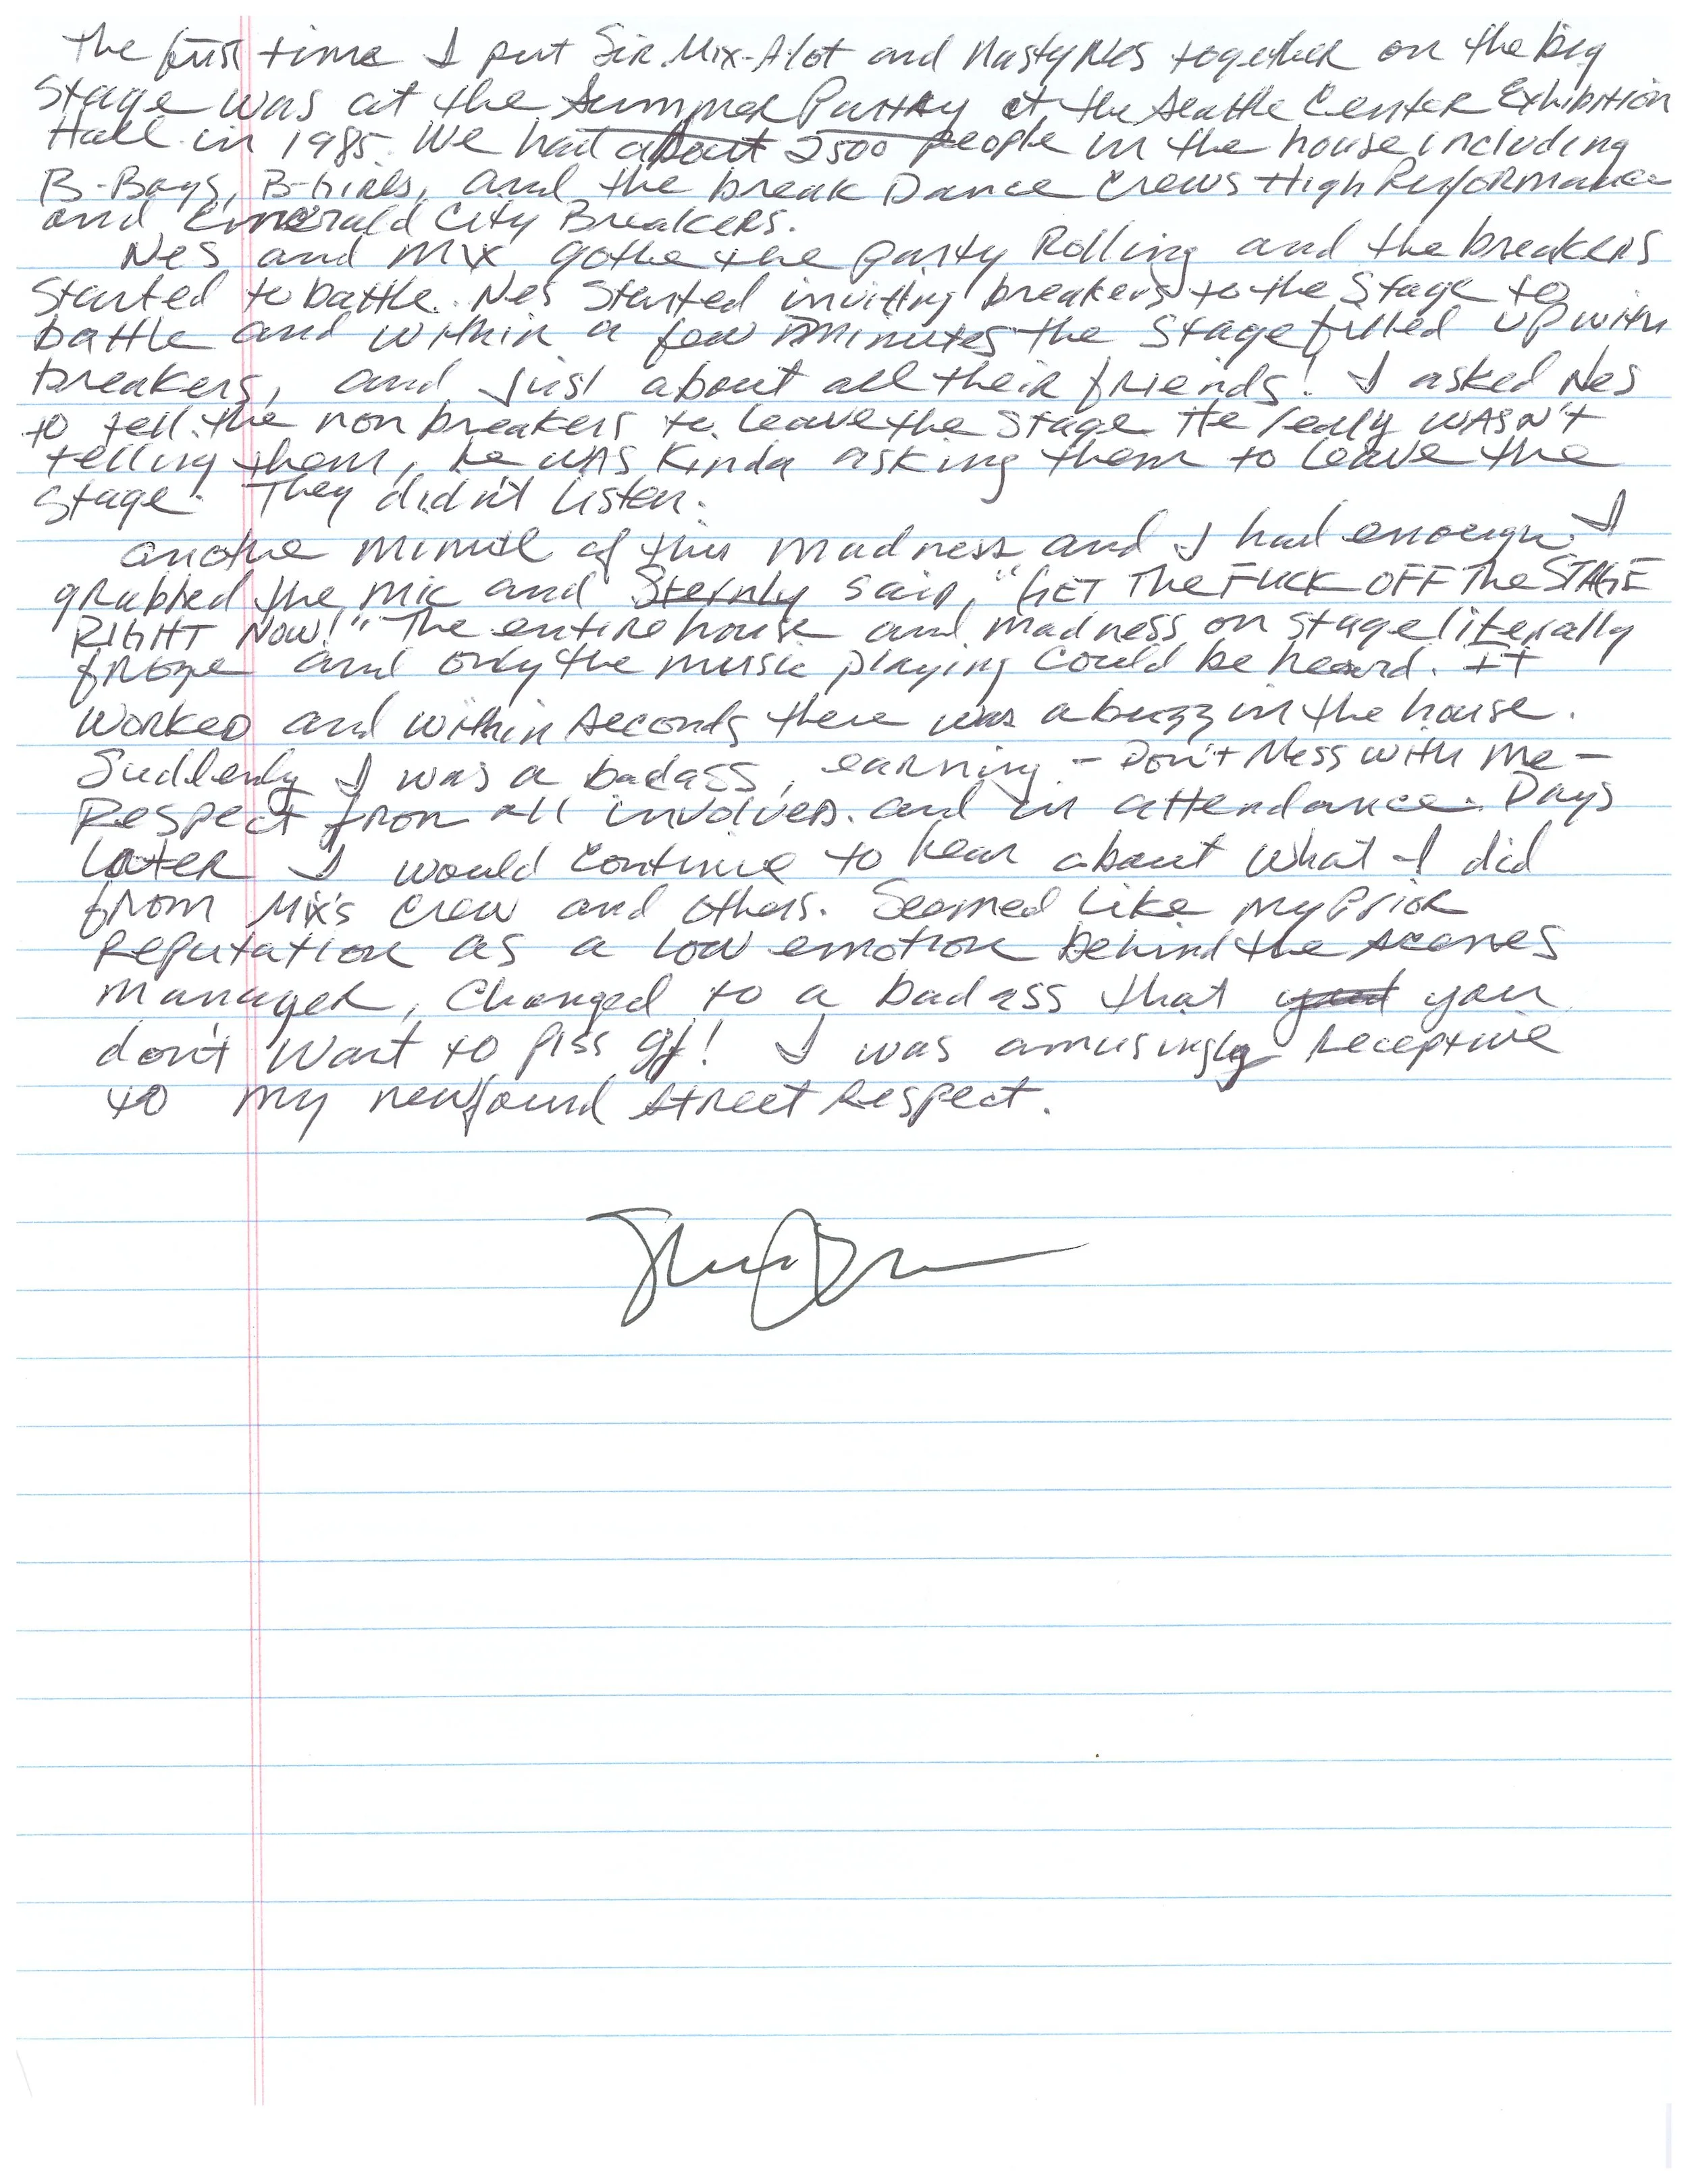 The first time I put Sir Mix-A-lot and Nasty Nes together on the big
Stage was at the Summer Party at the Seattle Center Exhibition
Hall in 1985. We had about 2500 people in the house including
B-Boys, B-Girls, and the break Dance Crews High Performance
and Emerald City Breakers.
Nes and Mix gothe the party Rolling and the breakers
Started to battle. Nes Started inviting breakers to the Stage to
battle and within a few minutes the Stage filled up with
breakers, and just about all their friends! I asked Nes
to tell the non breakers to leave the Stage. He really WASN'T
telling them, he WAS Kinda asking them to leave the
Stage. They didn't listen.
anothe minute of this madness and I had enough. I
grabbed the mic and Sternly said, "GET The FUCK OFF The STAGE
RIGHT NOW!" The entire house and madness on stage literally
froze and only the music playing could be heard. It
worked and within seconds there was a buzz in the house.
Suddenly I was a badass, earning - Don't Mess with Me -
Respect from all involved. and in attendance. Days
later I would continue to hear about what I did
from Mix's Crew and others. Seemed like my Prior
Reputation as a low emotion behind the scenes
manager, Changed to a badass that you
don't want to piss off! I was amusingly receptive
to my newfound street Respect.